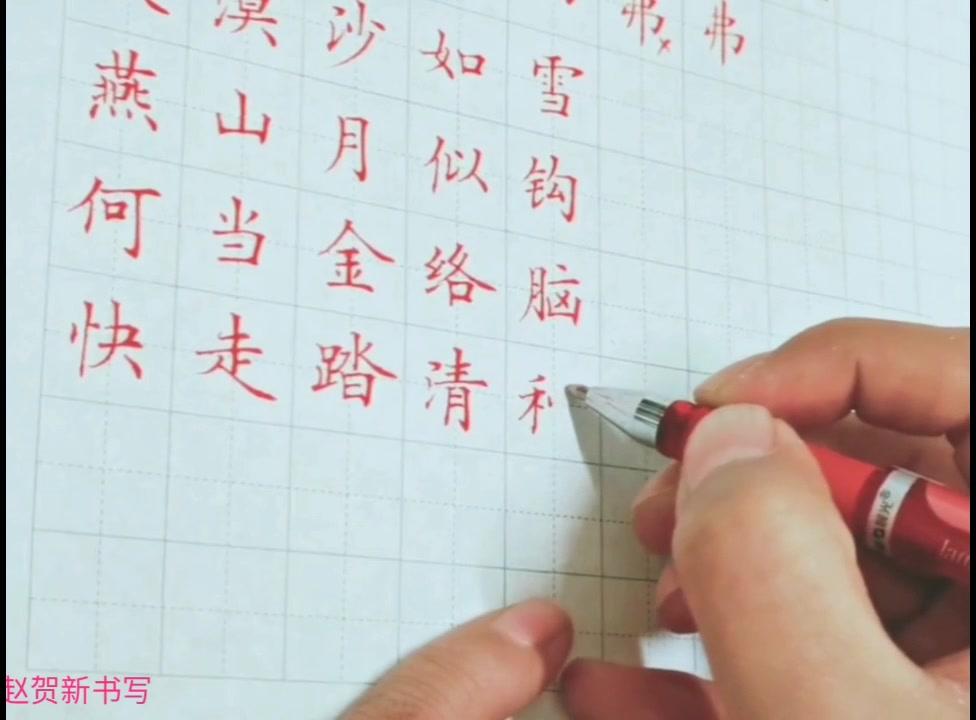 漠沙如雪
燕山月似钩
何当金络脑
快走踏清禾
弗× 弗
晨光
赵贺新书写